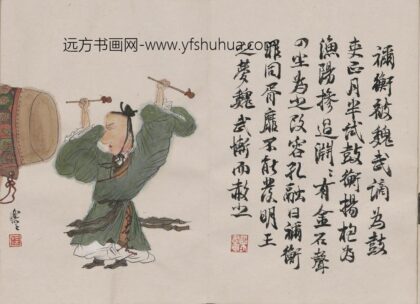 远方书画网-www.yfshuhua.com
禰衡被魏武謫為鼓
吏正月半試鼓衡揚枹為
漁陽摻檛淵淵有金石聲
四坐為之改容孔融曰禰衡
罪同胥靡不能發明王
之夢魏武慚而赦之